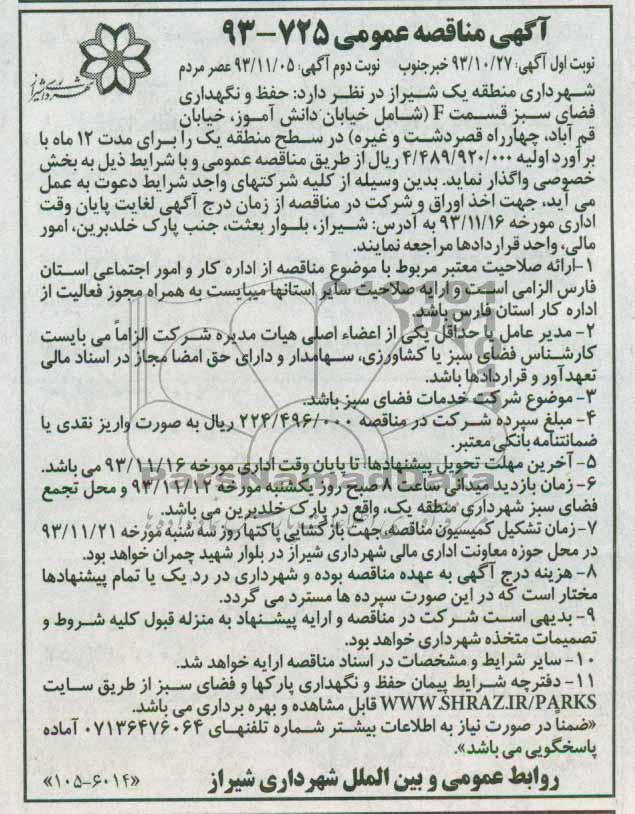 آگهی مناقصه عمومی ۷۲۵-۹۳
نوبت اول آگهی: ۹۳/۱۰/۲۷ خبرجنوب نوبت دوم آگهی: ۹۳/۱۱/۰۵ عصر مردم
شهرداری شیراز
شهرداری منطقه یک شیراز در نظر دارد: حفظ و نگهداری
فضای سبز قسمت F (شامل خیابان دانش آموز، خیابان
قم آباد، چهارراه قصردشت و غیره) در سطح منطقه یک را برای مدت ۱۲ ماه با
برآورد اولیه ۴/۴۸۹/۹۲۰/۰۰۰ ریال از طریق مناقصه عمومی و با شرایط ذیل به بخش
خصوصی واگذار نماید. بدین وسیله از کلیه شرکتهای واجد شرایط دعوت به عمل
می آید، جهت اخذ اوراق و شرکت در مناقصه از زمان درج آگهی لغایت پایان وقت
اداری مورخه ۹۳/۱۱/۱۶ به آدرس: شیراز، بلوار بعثت، جنب پارک خلدبرین، امور
مالی، واحد قراردادها مراجعه نمایند.
۱-ارائه صلاحیت معتبر مربوط با موضوع مناقصه از اداره کار و امور اجتماعی استان
فارس الزامی است و ارایه صلاحیت سایر استانها میبایست به همراه مجوز فعالیت از
اداره کار استان فارس باشد.
۲- مدیر عامل یا حداقل یکی از اعضاء اصلی هیات مدیره شرکت الزاماً می بایست
کارشناس فضای سبز یا کشاورزی، سهامدار و دارای حق امضا مجاز در اسناد مالی
تعهدآور و قراردادها باشد.
۳- موضوع شرکت خدمات فضای سبز باشد.
۴- مبلغ سپرده شرکت در مناقصه ۲۲۴/۴۹۶/۰۰۰ ریال به صورت واریز نقدی یا
ضمانتنامه بانکی معتبر.
۵- آخرین مهلت تحویل پیشنهادها: تا پایان وقت اداری مورخه ۹۳/۱۱/۱۶ می باشد.
۶- زمان بازدید میدانی ساعت ۸ صبح روز یکشنبه مورخه ۹۳/۱۱/۱۲ و محل تجمع
فضای سبز شهرداری منطقه یک، واقع در پارک خلدبرین می باشد.
۷-زمان تشکیل کمیسیون مناقصه جهت بازگشایی پاکتها روز سه شنبه مورخه ۹۳/۱۱/۲۱
در محل حوزه معاونت اداری مالی شهرداری شیراز در بلوار شهید چمران خواهد بود.
۸- هزینه درج آگهی به عهده مناقصه بوده و شهرداری در رد یک یا تمام پیشنهادها
مختار است که در این صورت سپرده ها مسترد می گردد.
۹- بدیهی است شرکت در مناقصه و ارایه پیشنهاد به منزله قبول کلیه شروط و
تصمیمات متخذه شهرداری خواهد بود.
۱۰- سایر شرایط و مشخصات در اسناد مناقصه ارایه خواهد شد.
۱۱- دفترچه شرایط پیمان حفظ و نگهداری پارکها و فضای سبز از طریق سایت
WWW.SHRAZ.IR/PARKS قابل مشاهده و بهره برداری می باشد.
«ضمناً در صورت نیاز به اطلاعات بیشتر شماره تلفنهای ۰۷۱۳۶۴۷۶۰۶۴ آماده
پاسخگویی می باشد».
روابط عمومی و بین الملل شهرداری شیراز «۱۰۵-۶۰۱۴»
ParsNamadData